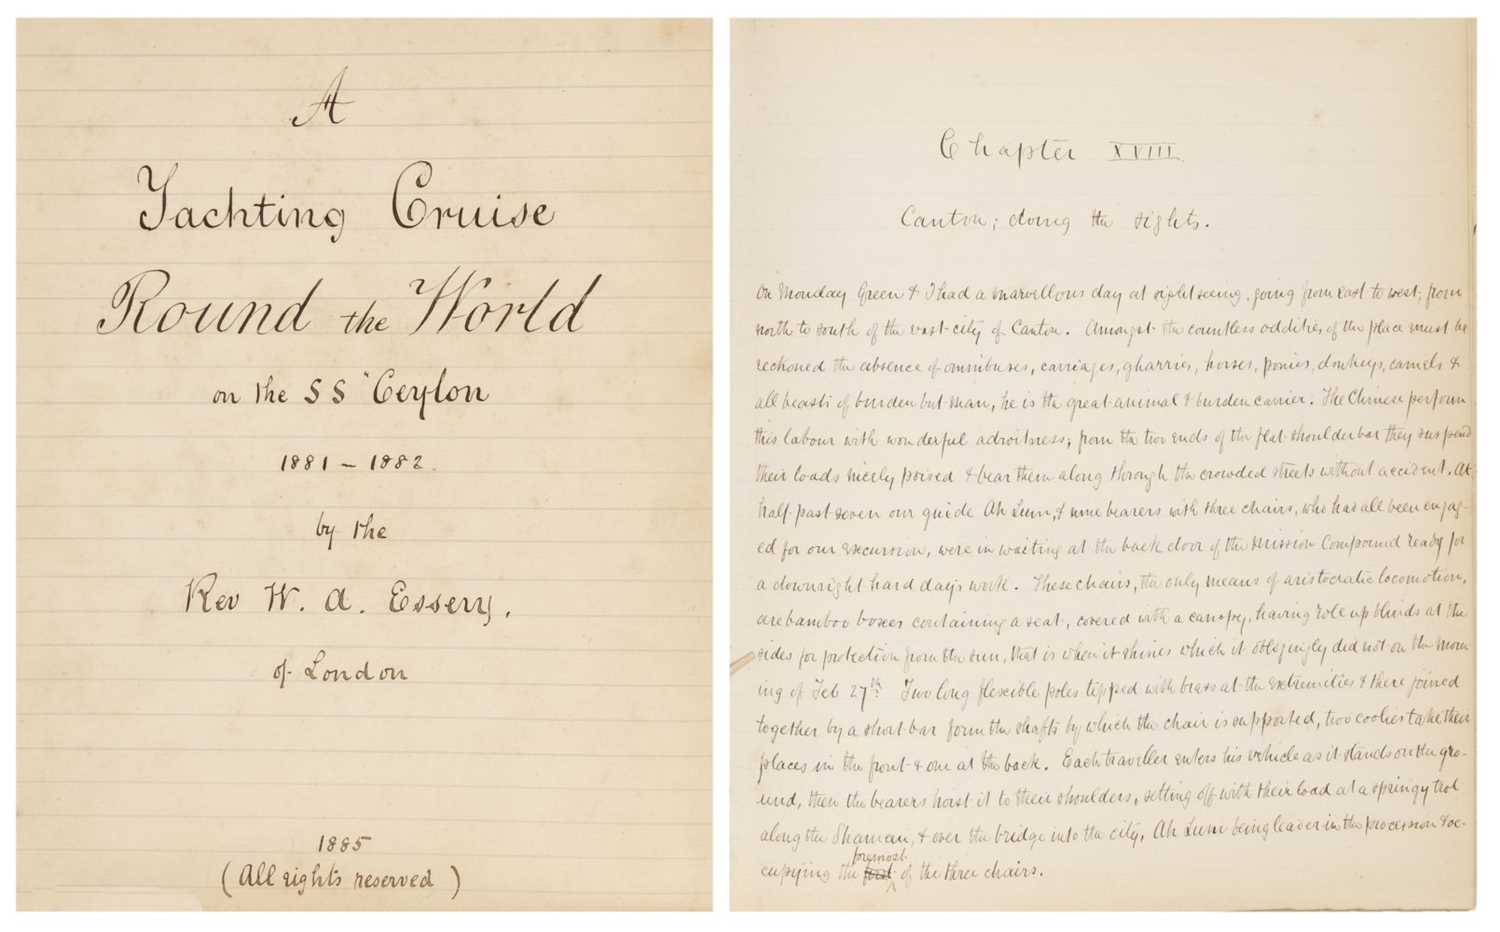 A
Yachting Cruise
Round the World
on the SS "Ceylon
1881 – 1882.
by the
Rev W. A. Essery,
of London
1885
(All rights reserved)
Chapter XVIII.
Canton; doing the sights.
On Monday Green & I had a marvellous day at sightseeing, going from east to west, from
north to south of the vast city of Canton. Amongst the countless oddities of the place must be
reckoned the absence of omnibuses, carriages, gharries, horses, ponies, donkeys, camels &
all beasts of burden but man, he is the great animal & burden carrier. The Chinese perform
this labour with wonderful adroitness; from the two ends of the flat shoulder bar they suspend
their loads nicely poised & bear them along through the crowded streets without accident. At
half-past seven our guide Ah Lum, & nine bearers with three chairs, who had all been engag-
ed for our excursion, were in waiting at the back door of the Mission Compound ready for
a downright hard day's work. These chairs, the only means of aristocratic locomotion,
are bamboo boxes containing a seat, covered with a canopy, having role up blinds at the
sides for protection from the sun, that is when it shines which it obligingly did not on the morn
ing of Feb 27th. Two long flexible poles tipped with brass at the extremities & there joined
together by a short bar form the shafts by which the chair is supported, two coolies take their
places in the front & one at the back. Each traveller enters his vehicle as it stands on the gro-
und, then the bearers hoist it to their shoulders, setting off with their load at a springy trot
along the Shameen, & over the bridge into the city, Ah Lum being leader in the procession & oc-
cupying the first foremost of the three chairs.